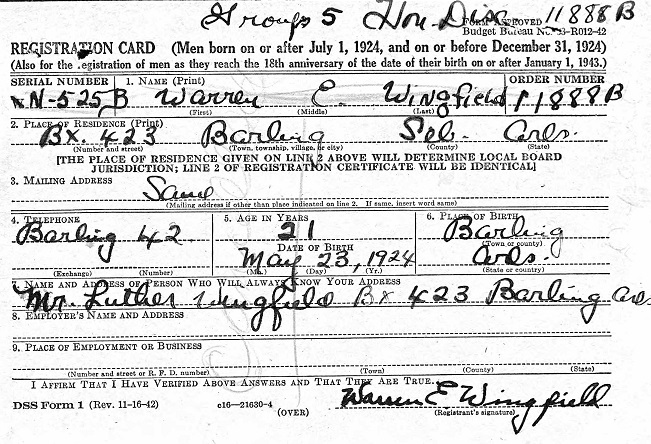 Group 5 Hon. Disc 11888B
FORM APPROVED
Budget Bureau No. 33-R012-42
REGISTRATION CARD (Men born on or after July 1, 1924, and on or before December 31, 1924)
(Also for the registration of men as they reach the 18th anniversary of the date of their birth on or after January 1, 1943.)
SERIAL NUMBER 1. NAME (Print) ORDER NUMBER
N-525,B Warren E. Wingfield 11888B
(First) (Middle) (Last)
2. PLACE OF RESIDENCE (Print)
Bx. 423 Barling Seb. Ards.
(Number and street) (Town, township, village, or city) (County) (State)
[THE PLACE OF RESIDENCE GIVEN ON LINE 2 ABOVE WILL DETERMINE LOCAL BOARD
JURISDICTION; LINE 2 OF REGISTRATION CERTIFICATE WILL BE IDENTICAL]
3. MAILING ADDRESS
Same
(Mailing address if other than place indicated on line 2. If same, insert word same)
4. TELEPHONE 5. AGE IN YEARS 6. PLACE OF BIRTH
Barling 42 21 Barling
DATE OF BIRTH (Town or county)
May 23, 1924 Ards.
(Exchange) (Number) (Mo.) (Day) (Yr.) (State or country)
7. NAME AND ADDRESS OF PERSON WHO WILL ALWAYS KNOW YOUR ADDRESS
Mr. Luther Wingfield Bx 423 Barling Ards
8. EMPLOYER'S NAME AND ADDRESS
9. PLACE OF EMPLOYMENT OR BUSINESS
(Number and street or R. F. D. number) (Town) (County) (State)
I AFFIRM THAT I HAVE VERIFIED ABOVE ANSWERS AND THAT THEY ARE TRUE.
Warren E. Wingfield
DSS Form 1 (Rev. 11-16-42) c16-21630-4 (OVER) (Registrant's signature)